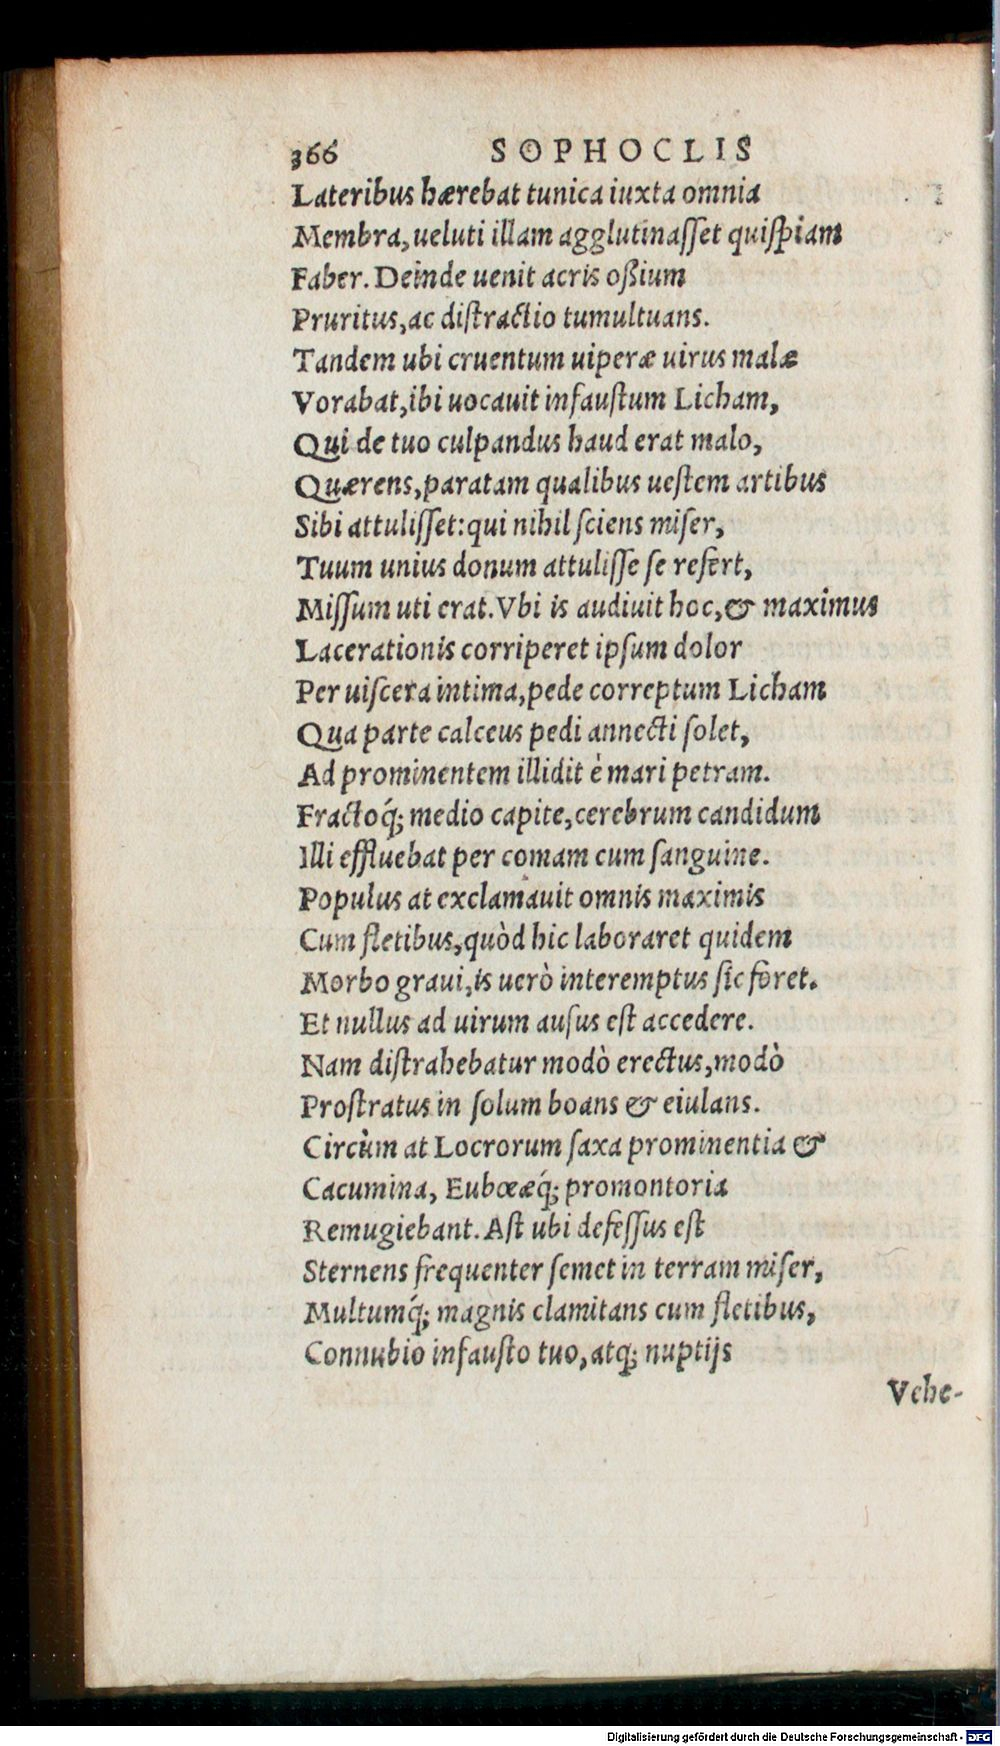 366 SOPHOCLIS
Lateribus hærebat tunica iuxta omnia
Membra, ueluti illam agglutinaſſet quiſpiam
Faber. Deinde uenit acris oßium
Pruritus, ac diſtractio tumultuans.
Tandem ubi cruentum uiperæ uirus malæ
Vorabat, ibi uocauit infauſtum Licham,
Qui de tuo culpandus haud erat malo,
Quærens, paratam qualibus ueſtem artibus
Sibi attuliſſet: qui nihil ſciens miſer,
Tuum unius donum attuliſſe ſe refert,
Miſſum uti erat. Vbi is audiuit hoc, & maximus
Lacerationis corriperet ipſum dolor
Per uiſcera intima, pede correptum Licham
Qua parte calceus pedi annecti ſolet,
Ad prominentem illidit è mari petram.
Fractoq́; medio capite, cerebrum candidum
Illi effluebat per comam cum ſanguine.
Populus at exclamauit omnis maximis
Cum fletibus, quòd hic laboraret quidem
Morbo graui, is uerò interemptus ſic foret.
Et nullus ad uirum auſus eſt accedere.
Nam diſtrahebatur modò erectus, modò
Proſtratus in ſolum boans & eiulans.
Circùm at Locrorum ſaxa prominentia &
Cacumina, Eubœæq́; promontoria
Remugiebant. Aſt ubi defeſſus eſt
Sternens frequenter ſemet in terram miſer,
Multumq́; magnis clamitans cum fletibus,
Connubio infauſto tuo, atq; nuptijs
Vehe-
Digitalisierung gefördert durch die Deutsche Forschungsgemeinschaft - DFG